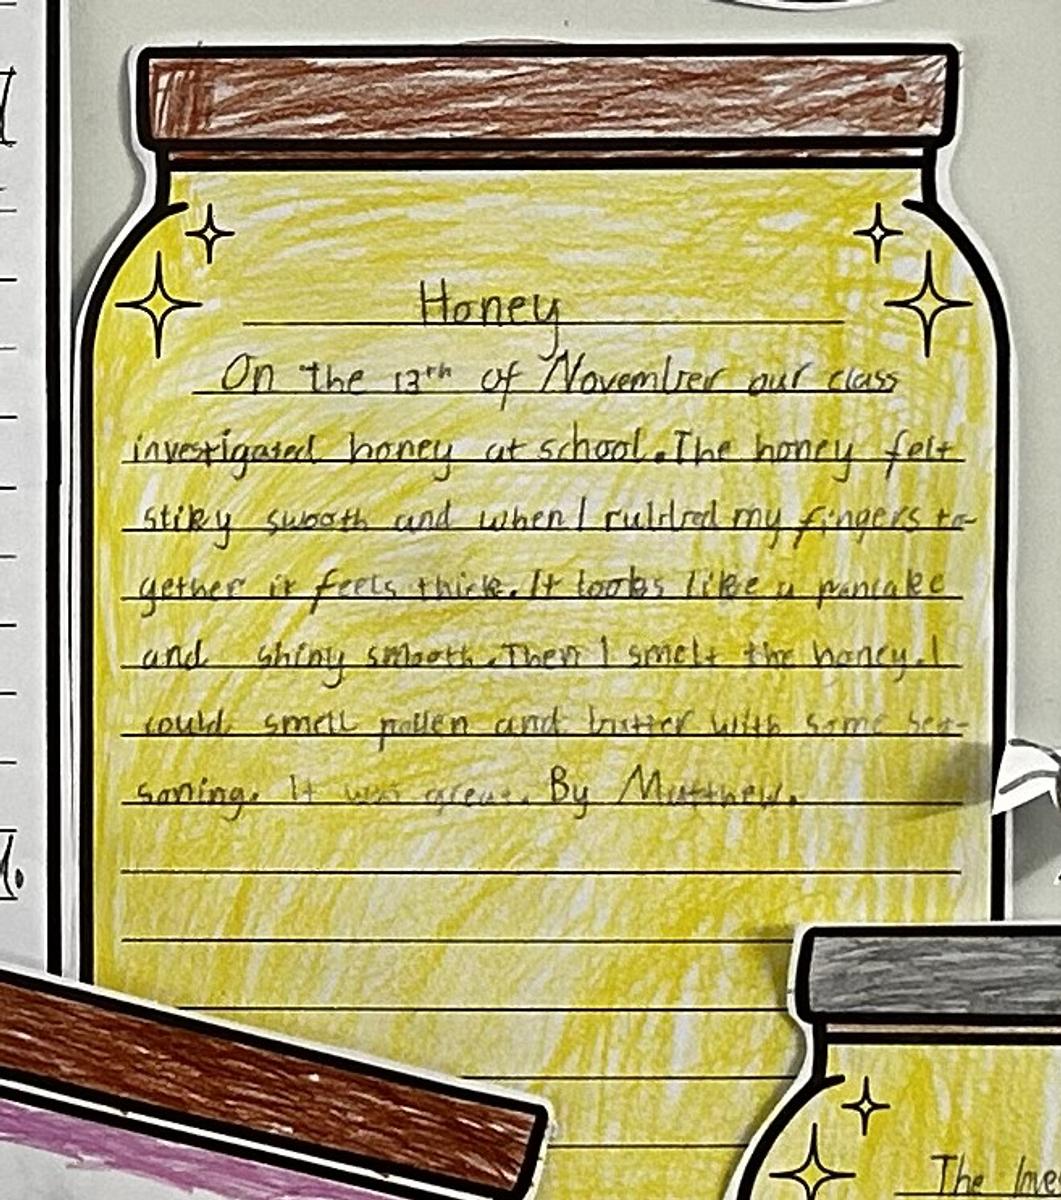 Honey
On the 13th of November our class
investigated honey at school. The honey felt
stiky swooth and when I rubbed my fingers to-
gether it feels thick. It looks like a pancake
and shiny smooth. Then I smelt the honey. I
could smell pollen and butter with some sea-
soning. It was great. By Matthew.
The love